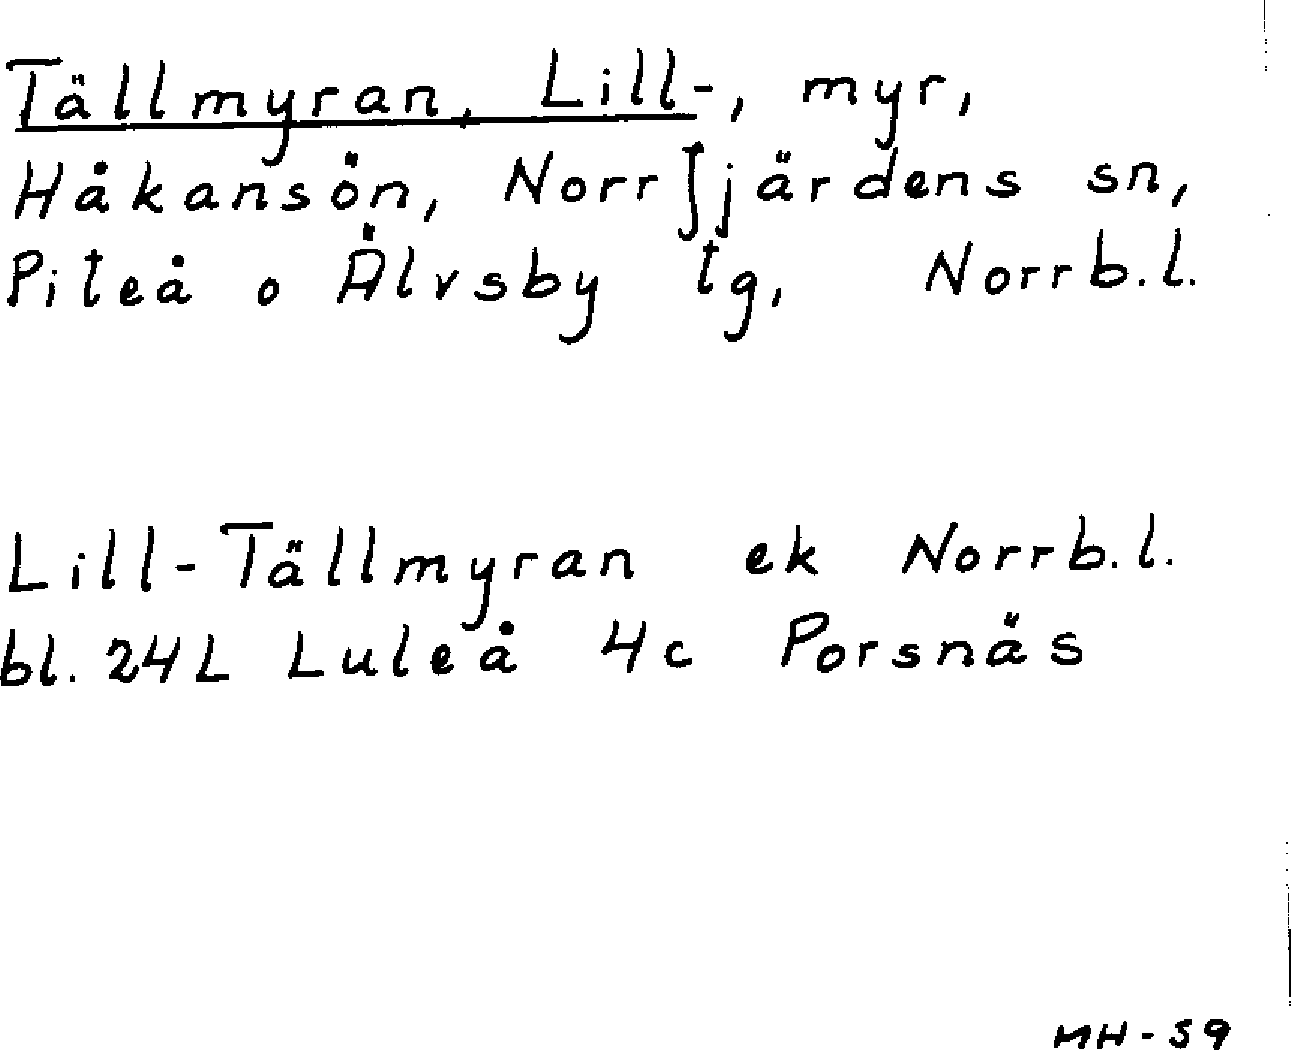 Tällmyran, Lill-, myr,
Håkansön, Norrfjärdens sn,
Piteå o Älvsby tg, Norrb.l.
Lill-Tällmyran ek Norrb.l.
bl. 24L Luleå 4c Porsnäs
MH-59